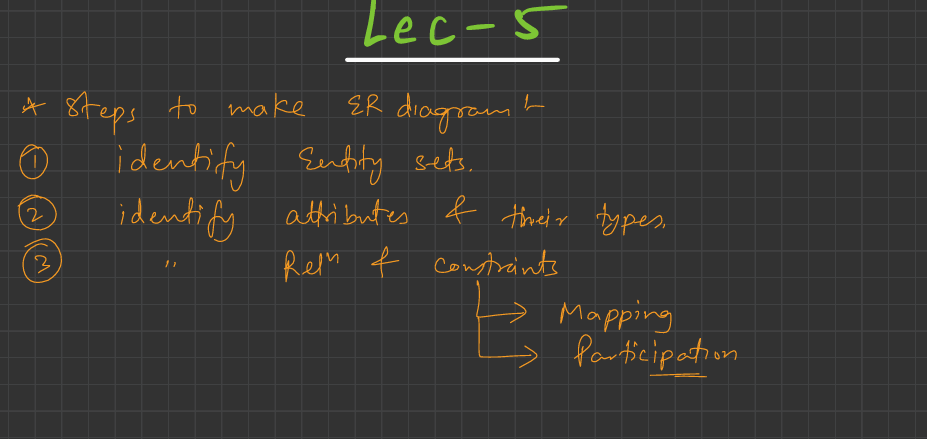 Lec-5
* Steps to make ER diagram :-
① identify Entity sets.
② identify attributes & their types.
③ " Relⁿ & constraints
→ Mapping
→ Participation